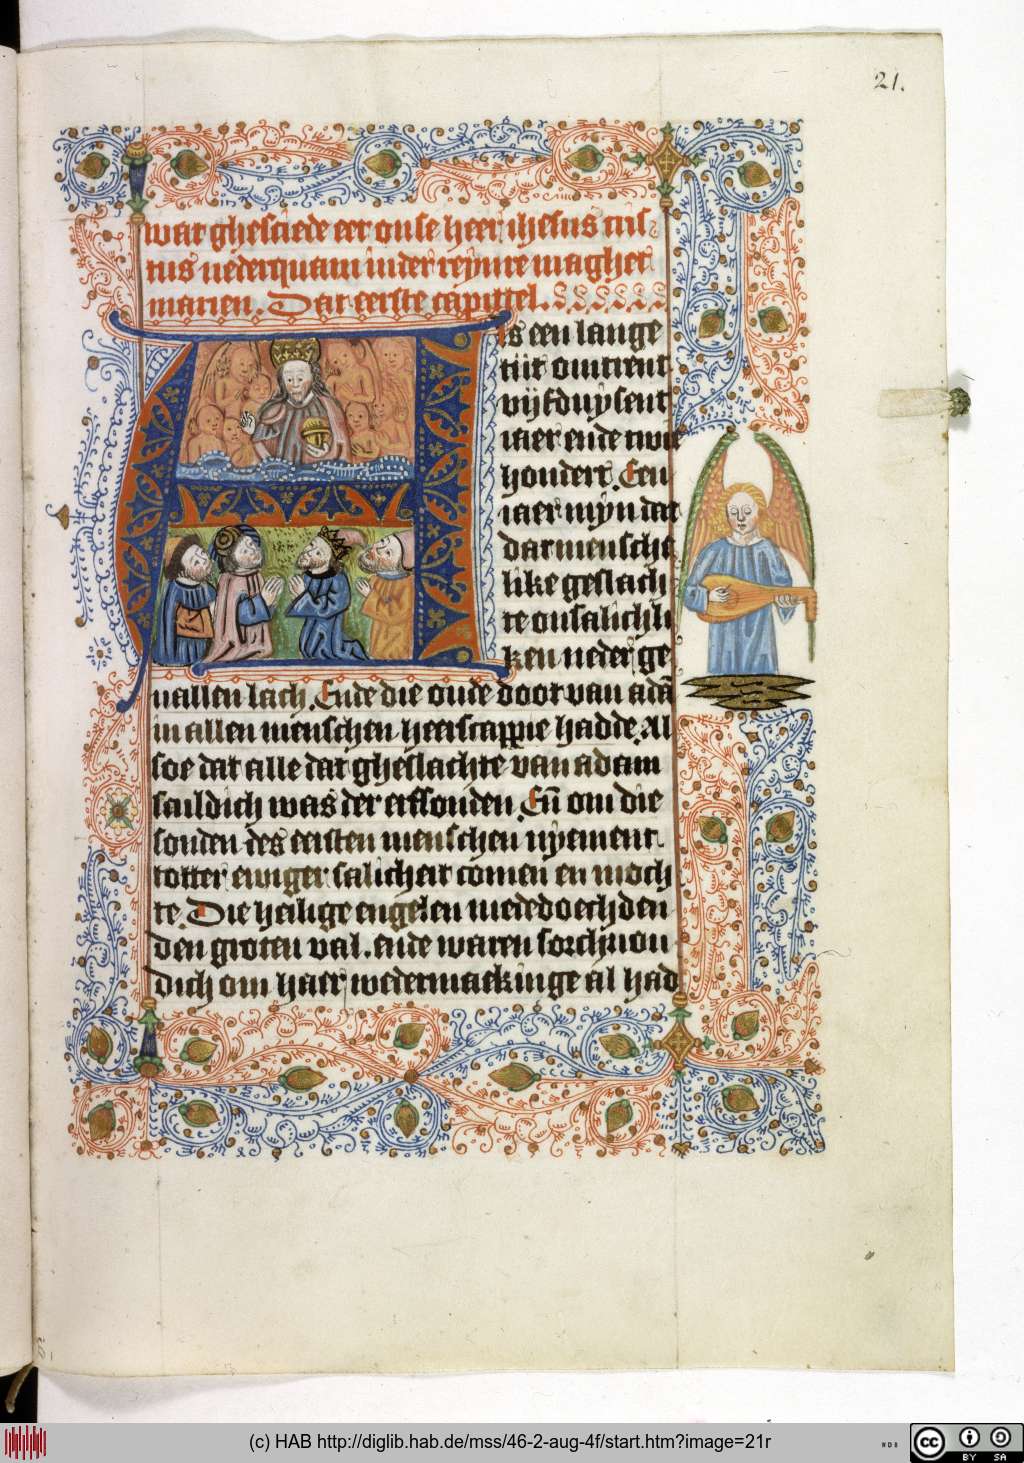 21.
wat ghesciede eer onse heer ihesus cris
tus nederquam in der reynre maghet
marien. Dat eerste capittel.
Als een lange
tijt omtrent
vijfduysent
iaer ende twe
hondert. Een
iaer myn dat
dat mensche
like geslach
te onsalichli
ken neder ge
uallen lach. Ende die oude doot van adā
in allen menschen heerscappie hadde. Al
soe dat alle dat gheslachte van adam
sculdich was der erfsonden. Eñ om die
sonden des eersten menschen nyement
totter ewiger salicheit comen en moch
te. Die heilige engelen mede doechden
den groten val. ende waren sorchuou
dich om haer wedermackinge al had
(c) HAB http://diglib.hab.de/mss/46-2-aug-4f/start.htm?image=21r
WDB
cc
BY SA